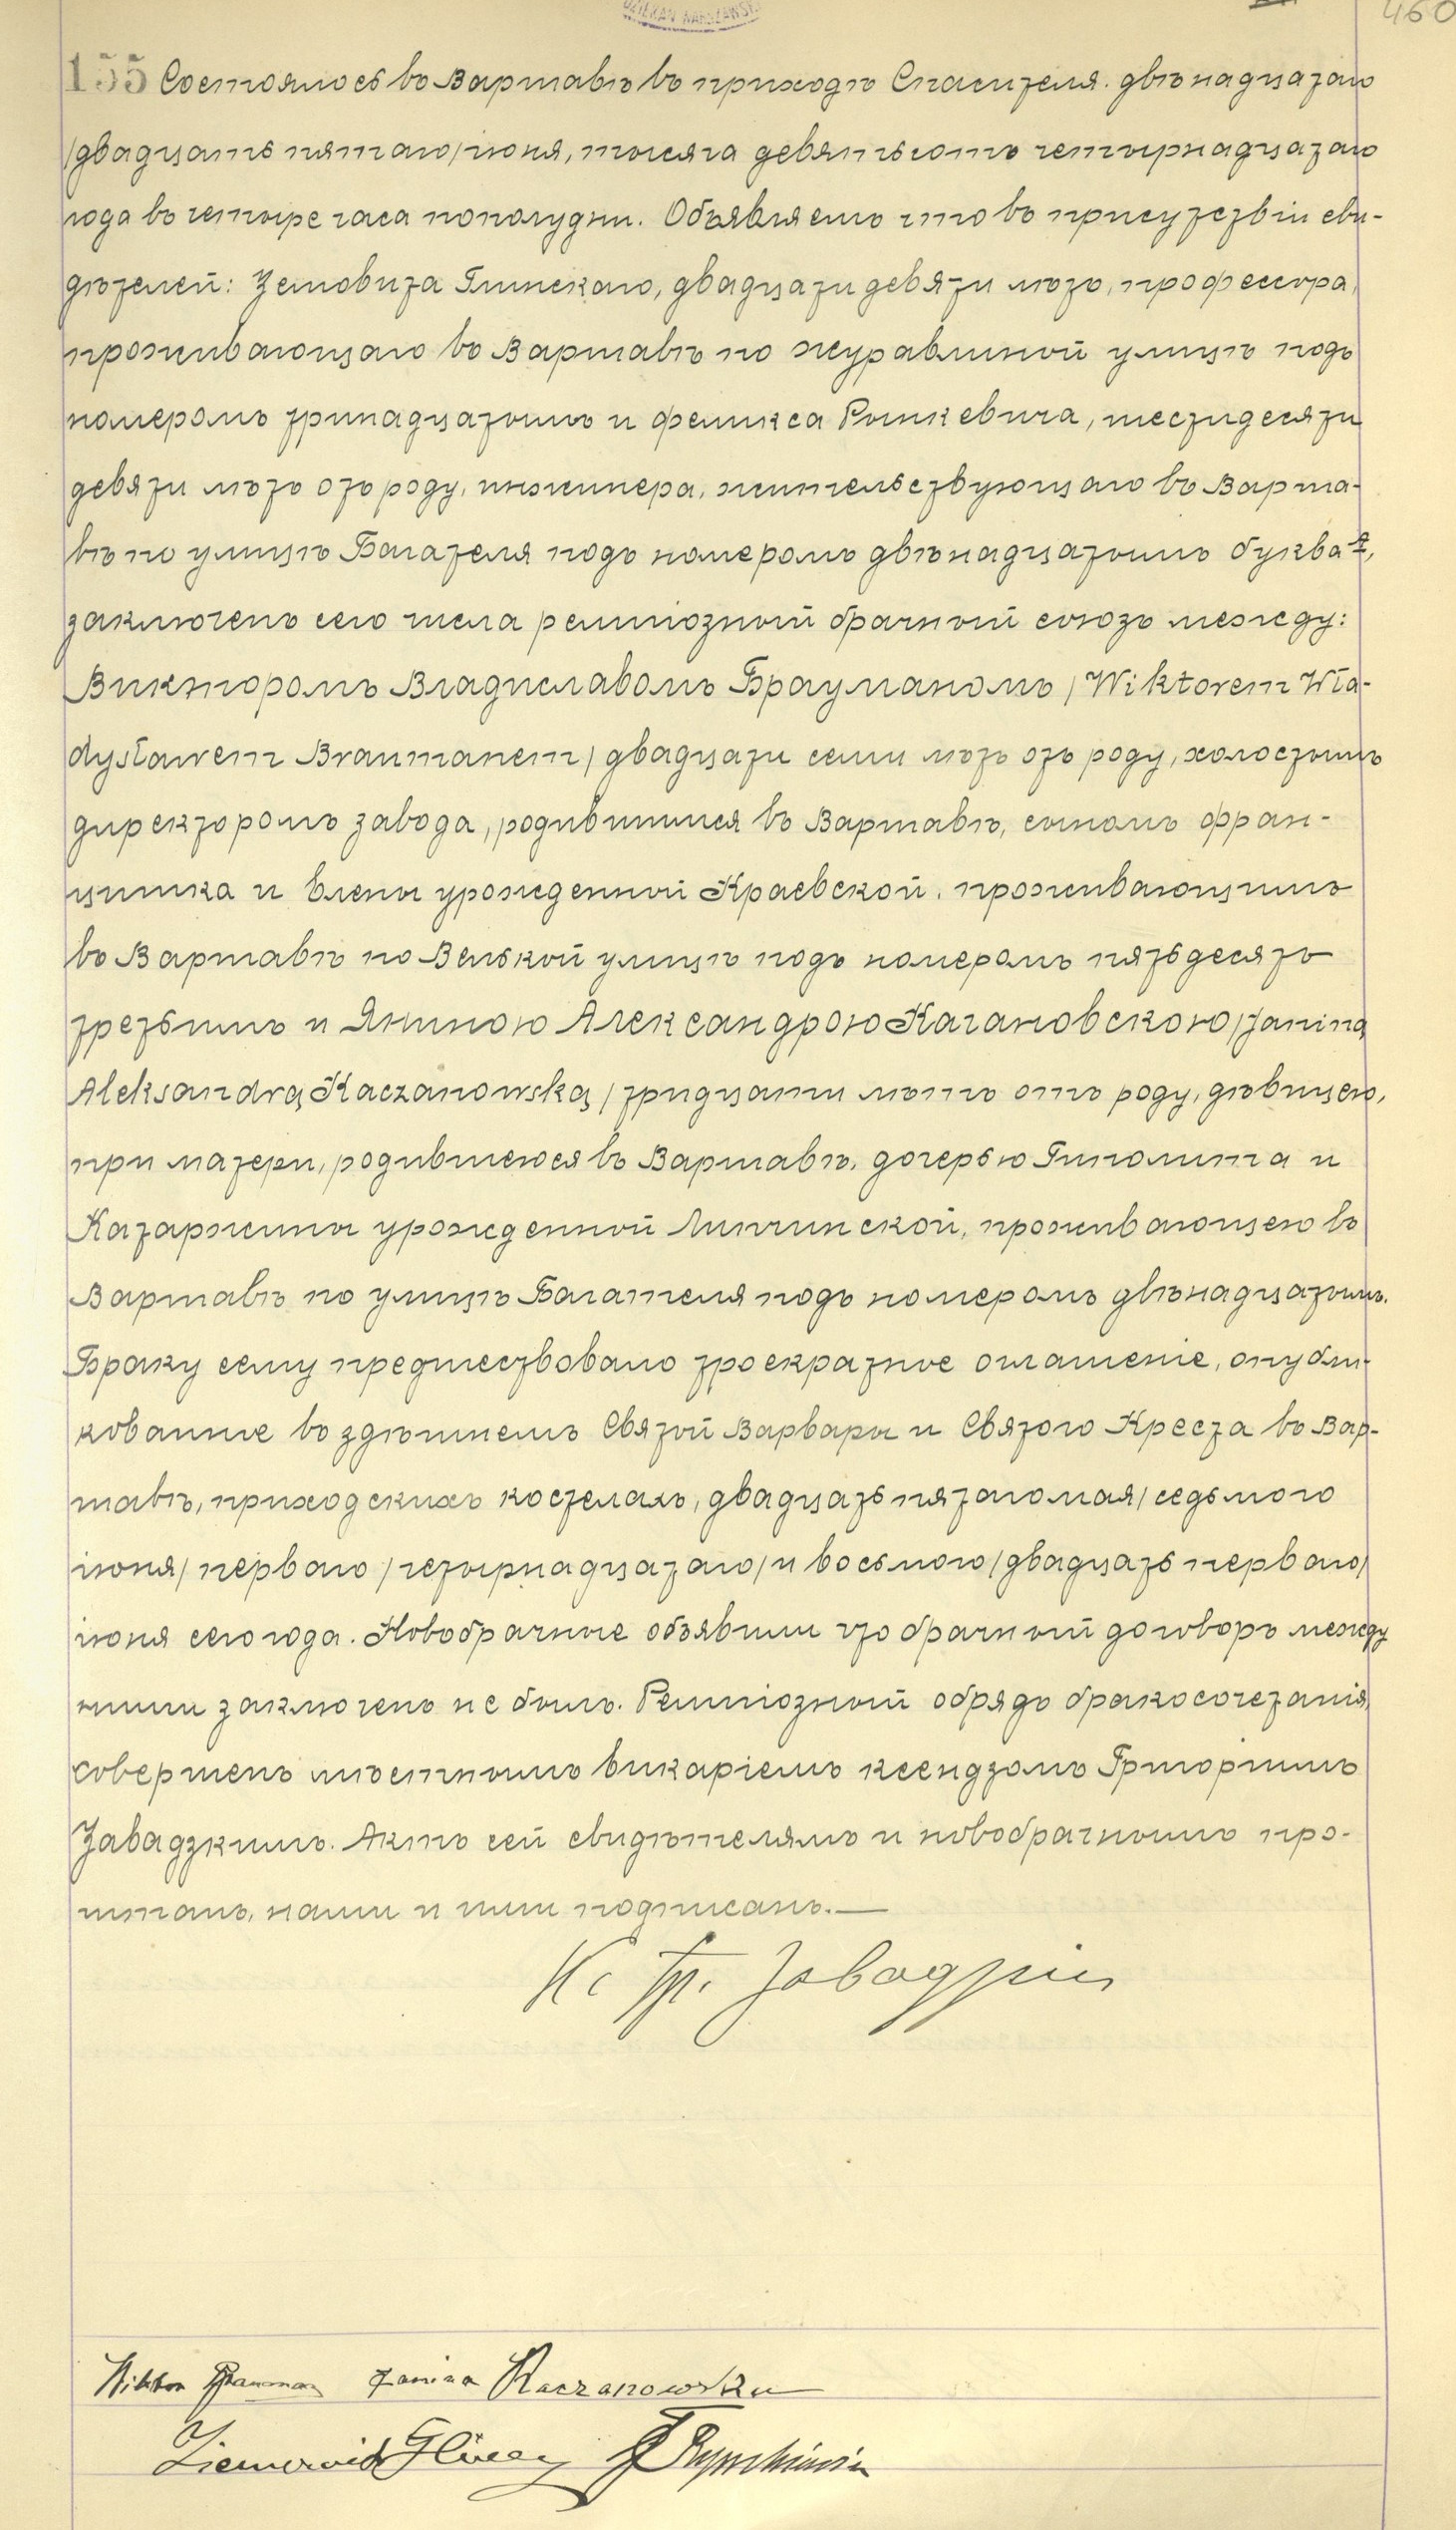 DZIEKAN WARSZAWSKI
460
155 Состоялось въ Варшавѣ въ приходѣ Спасителя. двѣнадцатаго
/двадцать пятаго/ іюня, тысяча девятьсотъ четырнадцатаго
года въ четыре часа пополудни. Объявляемъ что въ присутствіи сви-
дѣтелей: Земовита Глинскаго, двадцати девяти лѣтъ, профессора,
проживающаго въ Варшавѣ по Журавлиной улицѣ подъ
номеромъ тринадцатымъ и Феликса Рымкевича, шестидесяти
девяти лѣтъ отъ роду, инженера, жительствующаго въ Варша-
вѣ по улицѣ Багателя подъ номеромъ двѣнадцатымъ буква А,
заключенъ сего числа религіозный брачный союзъ между:
Викторомъ Владиславомъ Брауманомъ /Wiktorem Wła-
dysławem Braumanem/ двадцати семи лѣтъ отъ роду, холостымъ
директоромъ завода, родившимся въ Варшавѣ, сыномъ Фран-
цишка и Елены урожденной Краевской, проживающимъ
въ Варшавѣ по Велькой улицѣ подъ номеромъ пятьдесятъ
третьимъ и Яниною Александрою Качановскою /Janiną
Aleksandrą Kaczanowską/ тридцати лѣтъ отъ роду, дѣвицею,
при матери, родившеюся въ Варшавѣ, дочерью Ипполита и
Катаржины урожденной Липинской, проживающею въ
Варшавѣ по улицѣ Багателя подъ номеромъ двѣнадцатымъ.
Браку сему предшествовало троекратное оглашеніе, опубли-
кованное въ здѣшнемъ Святой Варвары и Святого Креста въ Вар-
шавѣ, приходскихъ костелахъ, двадцать пятаго мая /седьмого
іюня/ перваго /четырнадцатаго/ и восьмого /двадцать перваго/
іюня сего года. Новобрачные объявили что брачный договоръ между
ними заключенъ не былъ. Религіозный обрядъ бракосочетанія
совершенъ мѣстнымъ викаріемъ ксендзомъ Григоріимъ
Завадзкимъ. Актъ сей свидѣтелямъ и новобрачнымъ про-
читанъ, нами и ими подписанъ.—
Кс Гр. Завадзкій
Wiktor Brauman Janina Kaczanowska
Ziemowid Gliński F Rymkiewicz